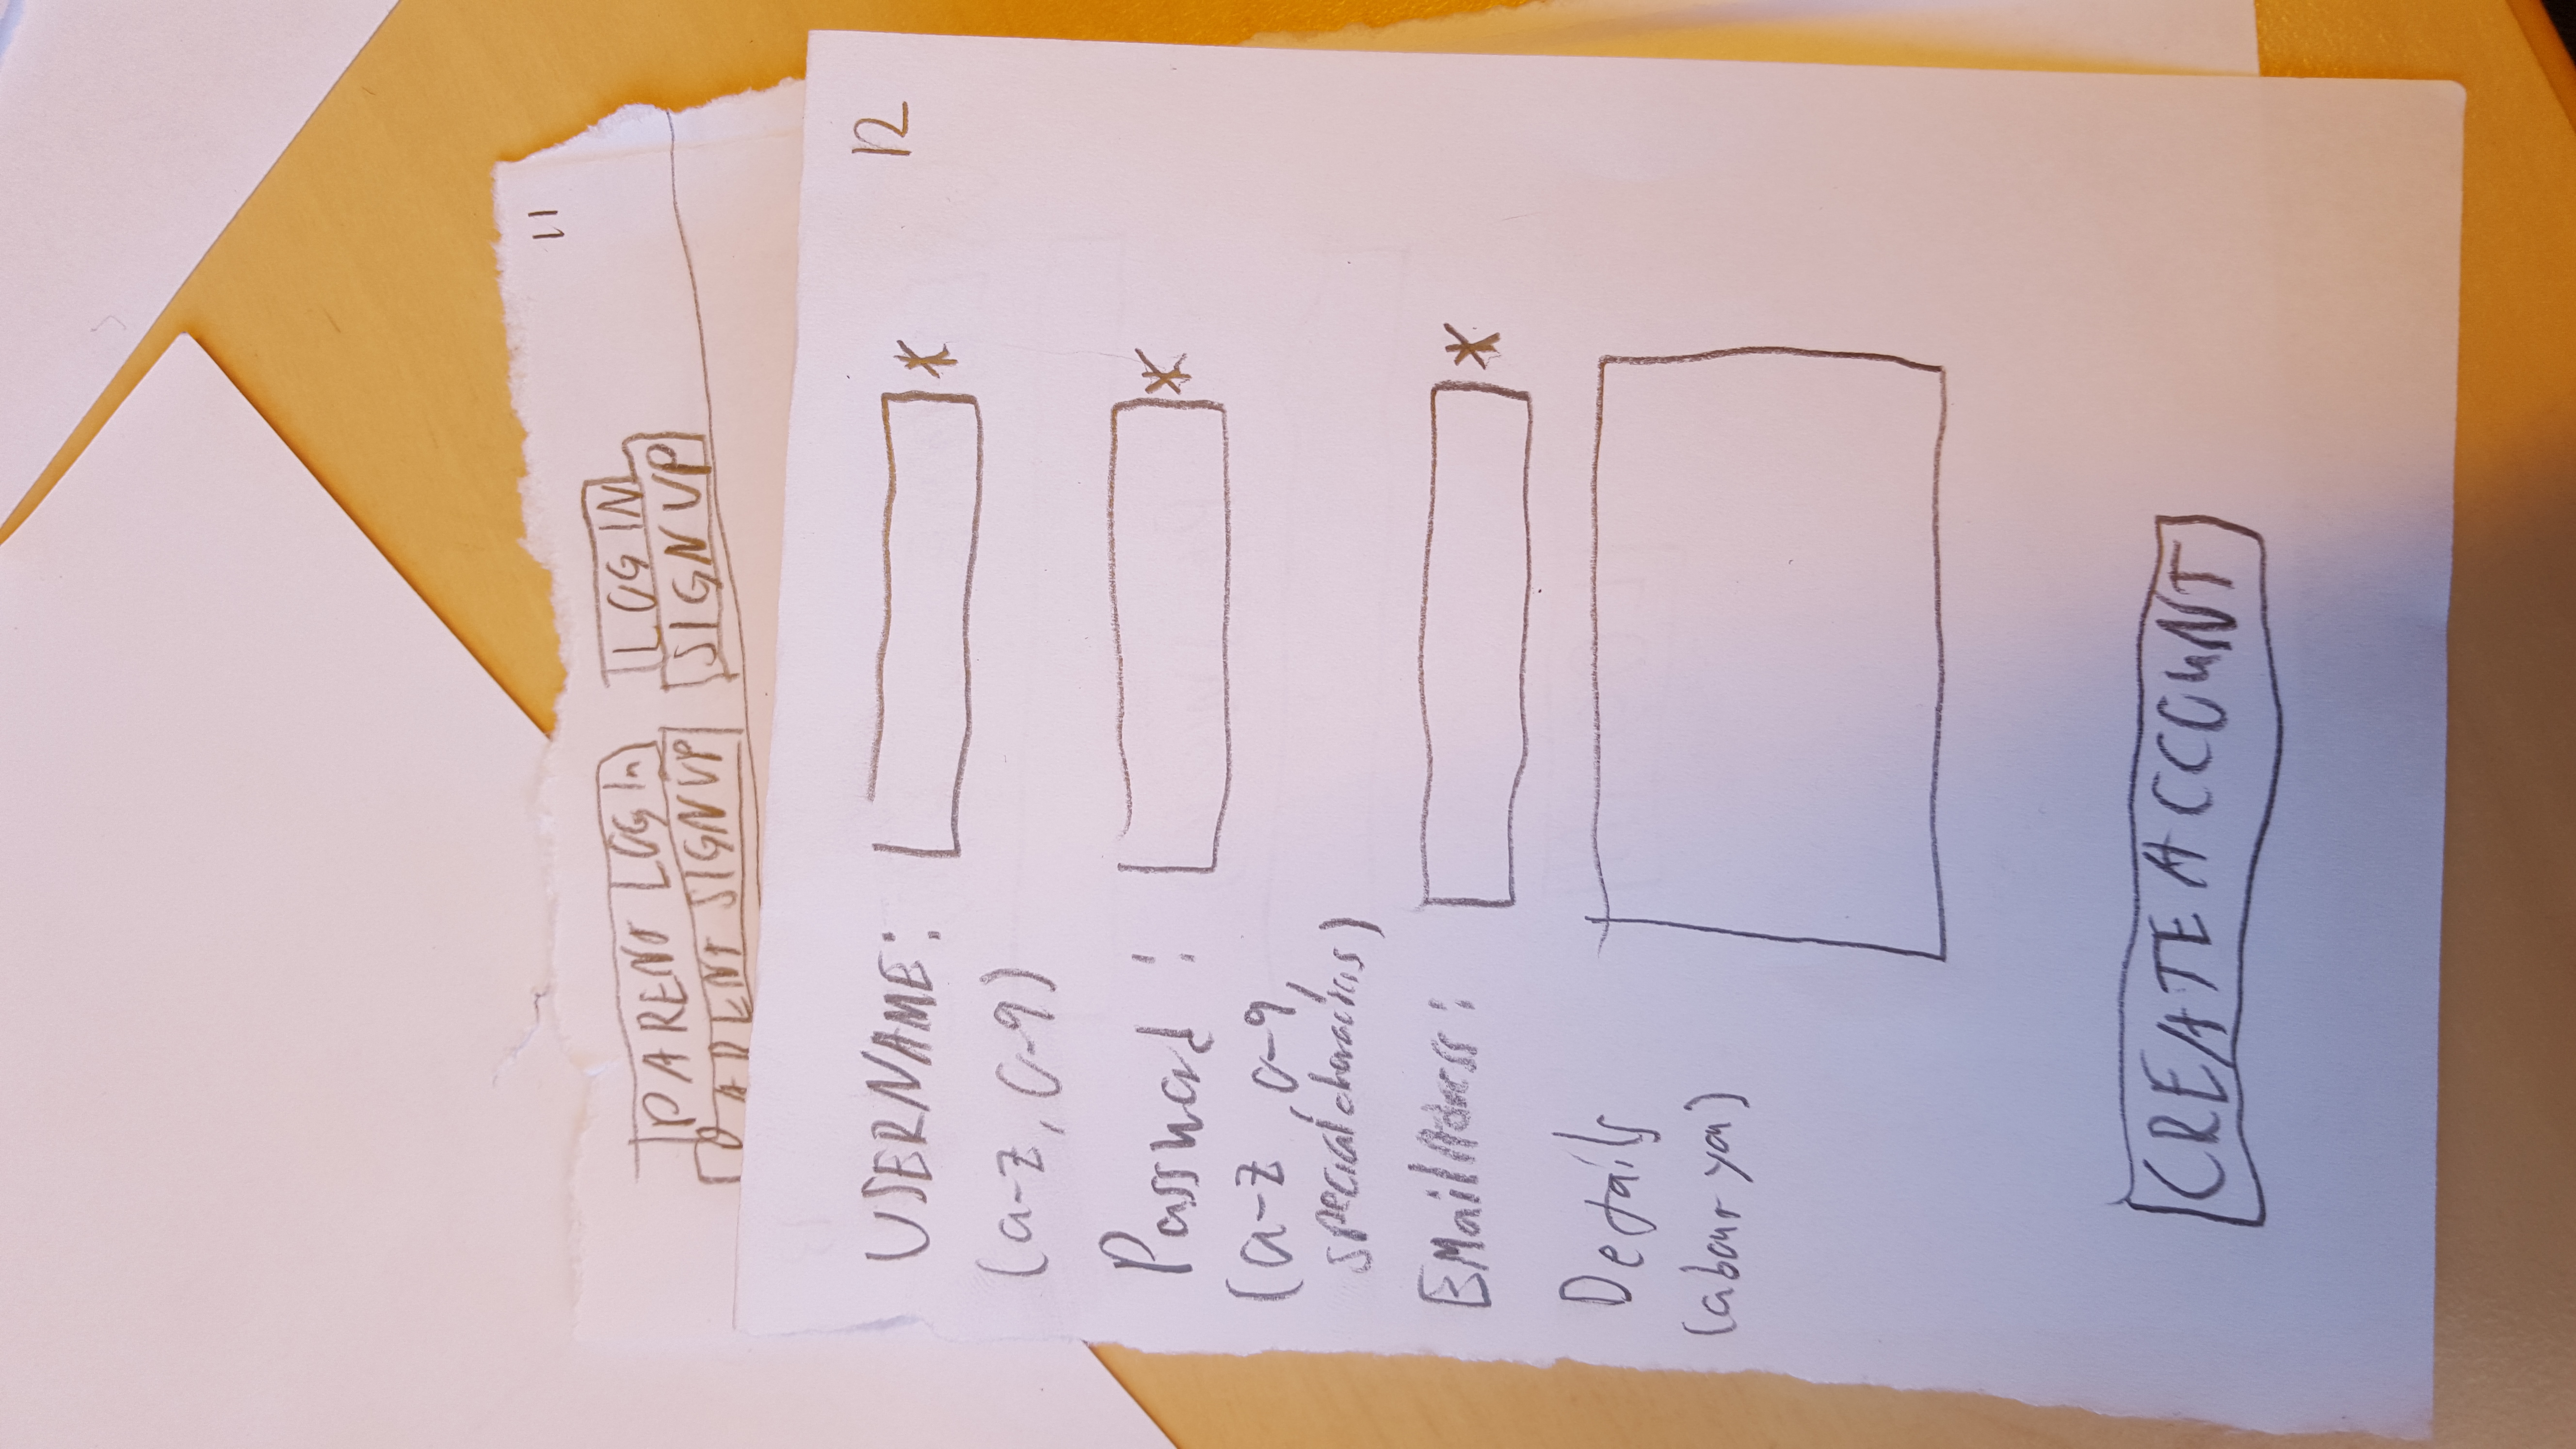 11
PARENT LOGIn LOGIN
PARENT SIGNUP SIGN UP
12
USERNAME: *
(a-z, 0-9)
Password : *
(a-z, 0-9,
special characters)
EMail Adress: *
Details
(about you)
CREATE ACCOUNT